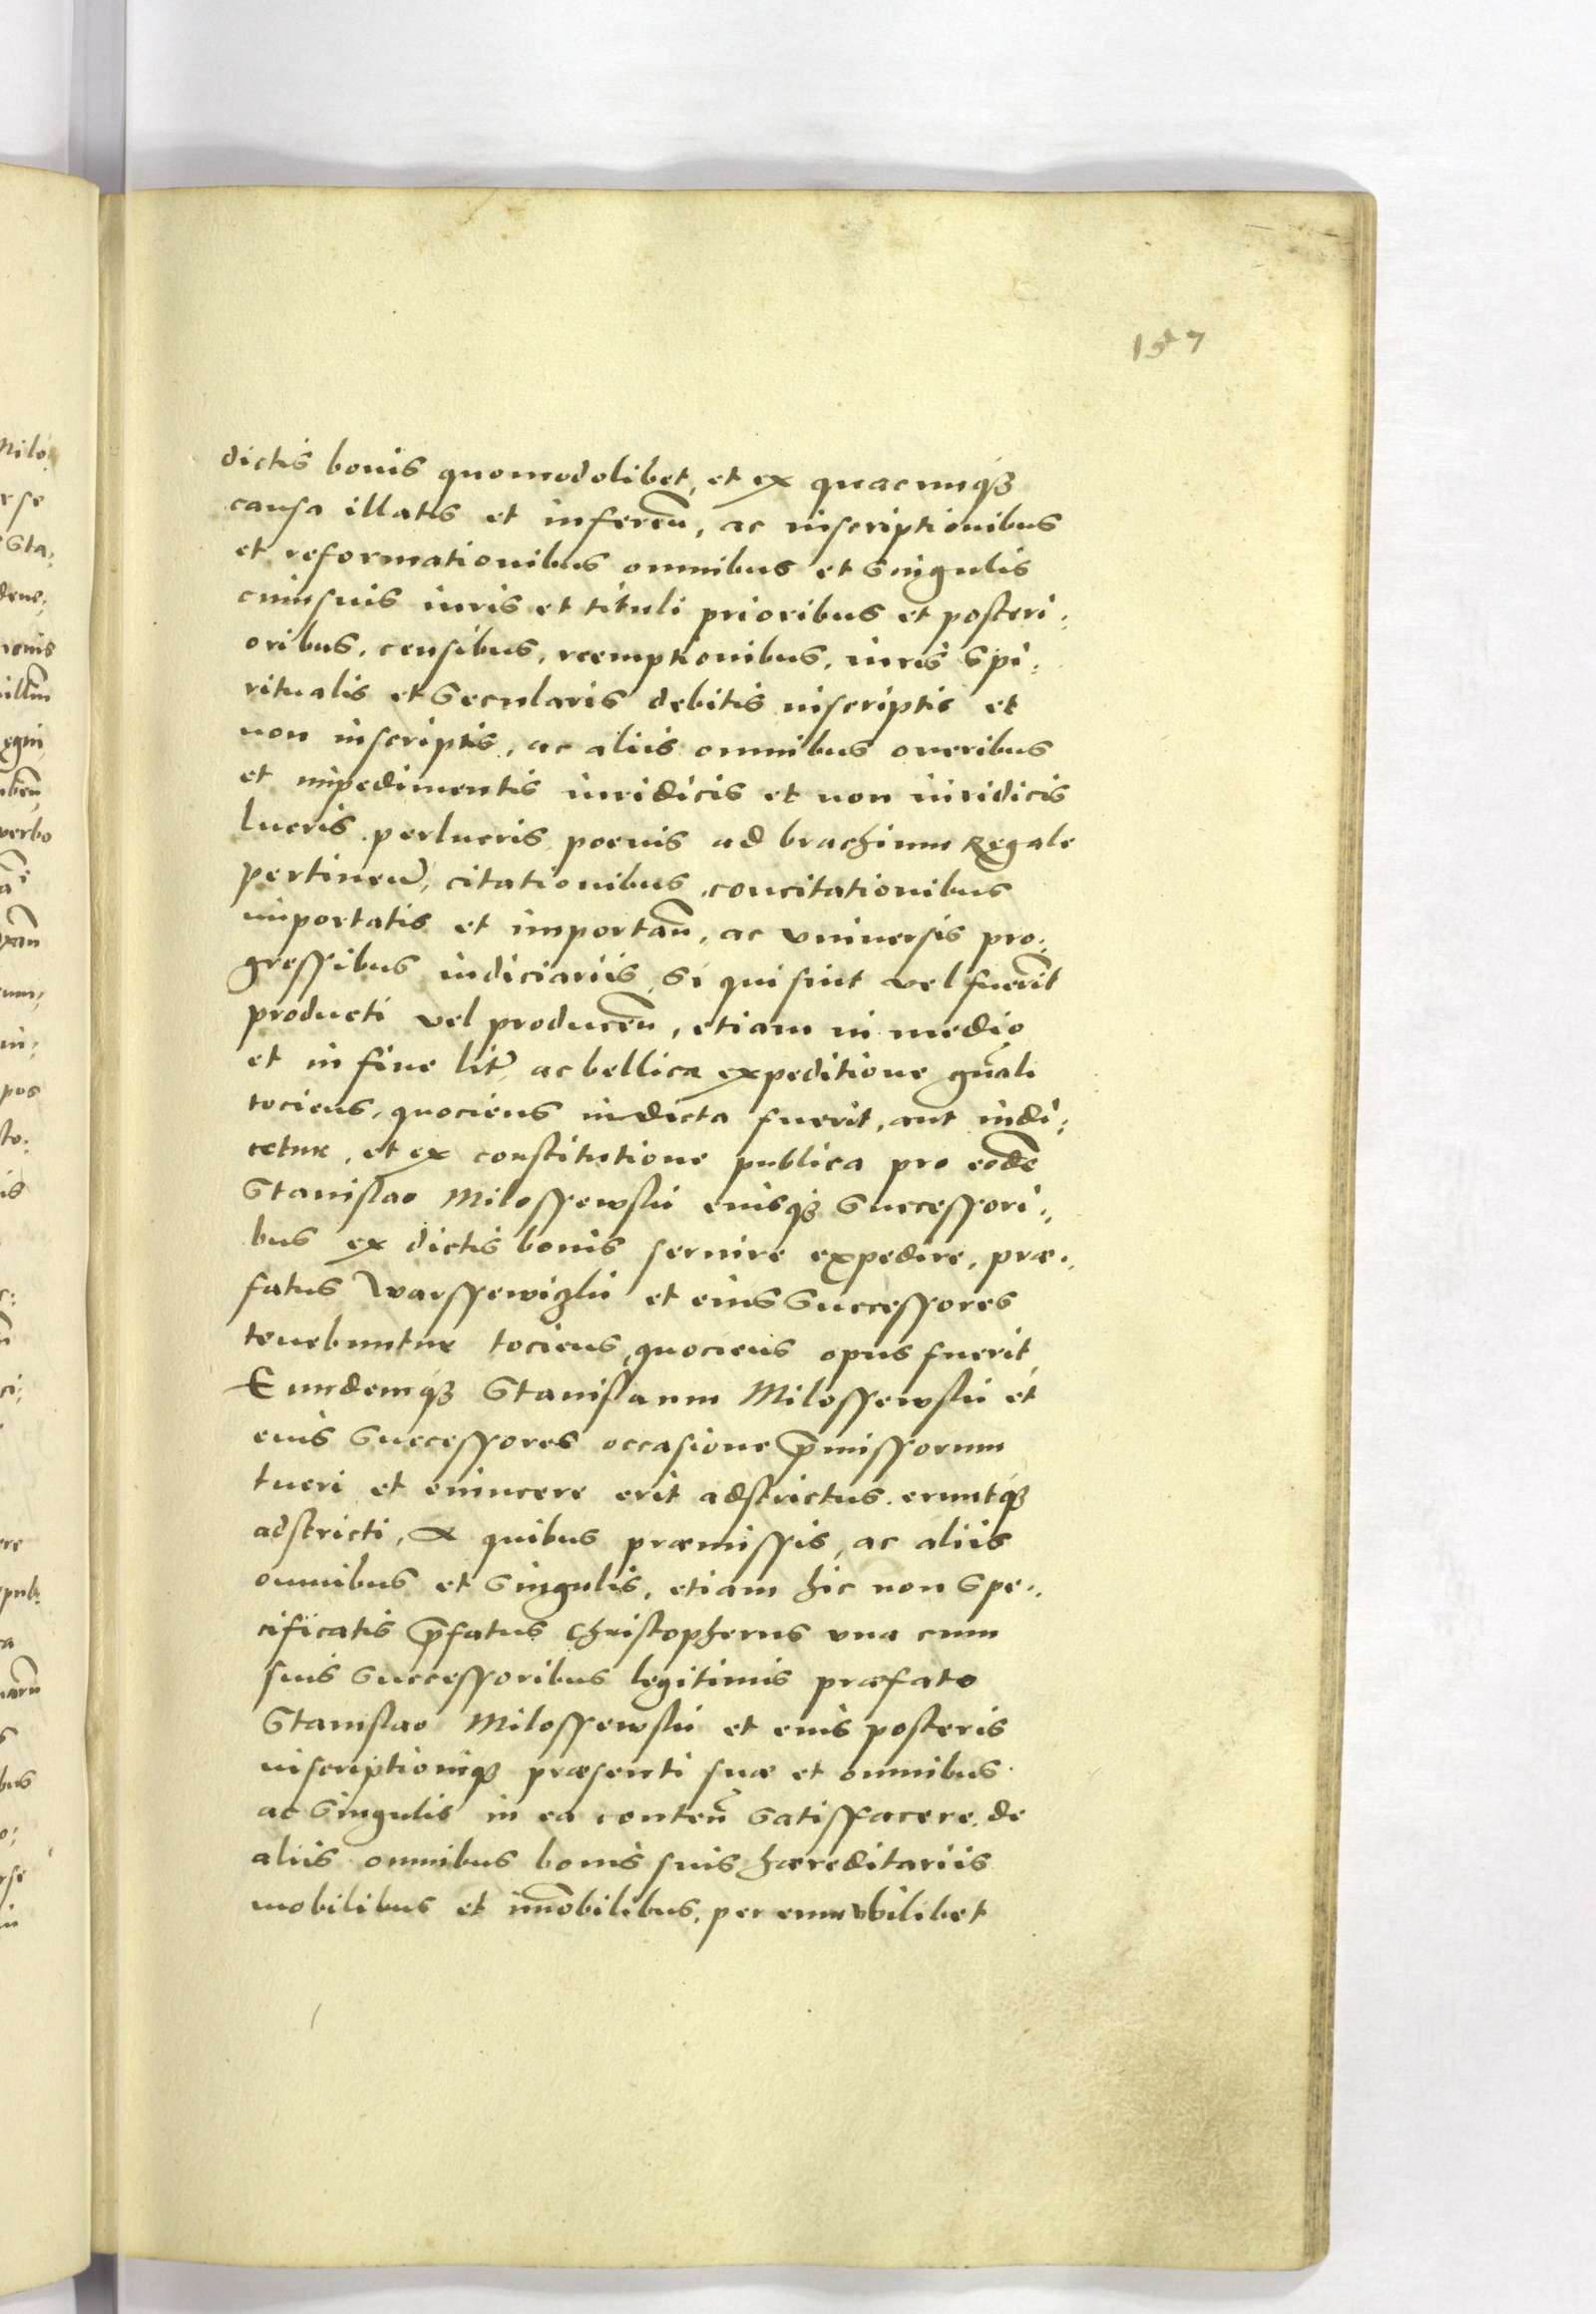 197
dictis bonis quomodolibet, et ex quacunq3
causa illatis et inferen̄, ac inscriptionibus
et reformationibus omnibus et singulis
cuiusuis iuris et tituli prioribus et posteri:
oribus, censibus, reemptionibus, iuris spi:
ritualis et secularis debitis inscriptis et
non inscriptis, ac aliis omnibus oneribus
et impedimentis iuridicis et non iuridicis
lucris perlucris poenis ad brachium Regale
pertinen̄, citationibus, concitationibus
importatis et importan̄, ac vniuersis pro:
gressibus iudiciariis, si qui sint vel fuerīt
producti vel producen̄, etiam in medio
et in fine lit̄, ac bellica expeditione gn̄ali
tociens, quociens indicta fuerit, aut indi:
cetur, et ex constitutione publica pro eodē
Stanislao Milossewski eiusq3 successori:
bus ex dictis bonis seruire expedire, præ:
fatus Warssewiczki et eius successores
tenebuntur tociens, quociens opus fuerit,
Eundemq3 Stanislaum Milossewski et
eius successores occasione p̄missorum
tueri et euincere erit adstrictus, eruntq3
adstricti, & quibus præmissis, ac aliis
omnibus et singulis, etiam hic non spe:
cificatis p̄fatus Christopherus vna cum
suis successoribus legitimis præfato
Stanislao Milossewski et eius posteris
inscriptioniq3 præsenti suæ et omnibus
ac singulis in ea conten̄ satisfacere, de
aliis omnibus bonis suis hæreditariis
mobilibus et im̄obilibus, per eum vbilibet